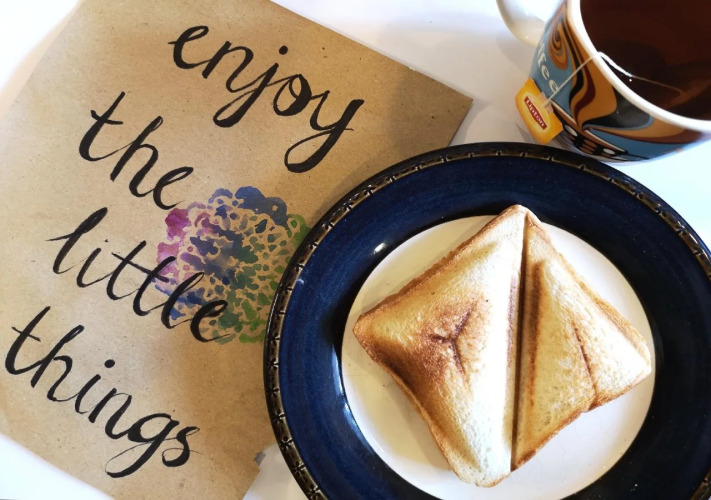 enjoy
the
little
things
Lipton